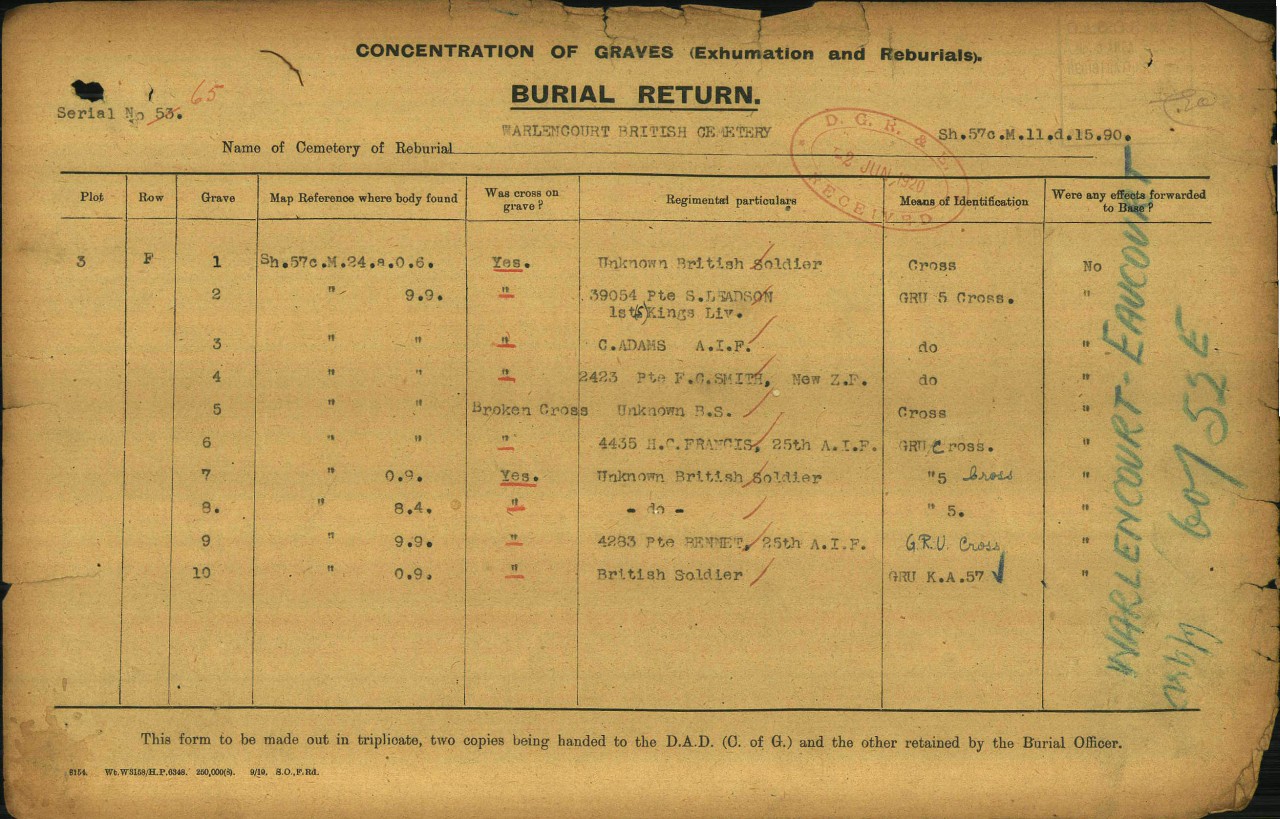 CONCENTRATION OF GRAVES (Exhumation and Reburials).
BURIAL RETURN.
Serial No 53. 65
WARLENCOURT BRITISH CEMETERY Sh.57c.M.11.d.15.90.
Name of Cemetery of Reburial
D. G. R. & E.
2 JUN 1920
RECEIVED
Plot Row Grave Map Reference where body found Was cross on grave? Regimental particulars Means of Identification Were any effects forwarded to Base?
3 F 1 Sh.57c.M.24.a.0.6. Yes. Unknown British Soldier Cross No
2 " 9.9. " 39054 Pte S.LEADSON GRU 5 Cross. "
1st(5)Kings Liv.
3 " " " C.ADAMS A.I.F. do "
4 " " " 2423 Pte F.G.SMITH, New Z.F. do "
5 " " Broken Cross Unknown B.S. Cross "
6 " " " 4435 H.C.FRANCIS, 25th A.I.F. GRU Cross. "
7 " 0.9. Yes. Unknown British Soldier "5 Cross "
8. " 8.4. " - do - " 5. "
9 " 9.9. " 4283 Pte BENNET, 25th A.I.F. G.R.U. Cross "
10 " 0.9. " British Soldier GRU K.A.57 "
WARLENCOURT-EAUCOURT
607 52 E
This form to be made out in triplicate, two copies being handed to the D.A.D. (C. of G.) and the other retained by the Burial Officer.
8154. Wt.W3158/H.P.6348. 250,000(8). 9/19. S.O.,F.Rd.